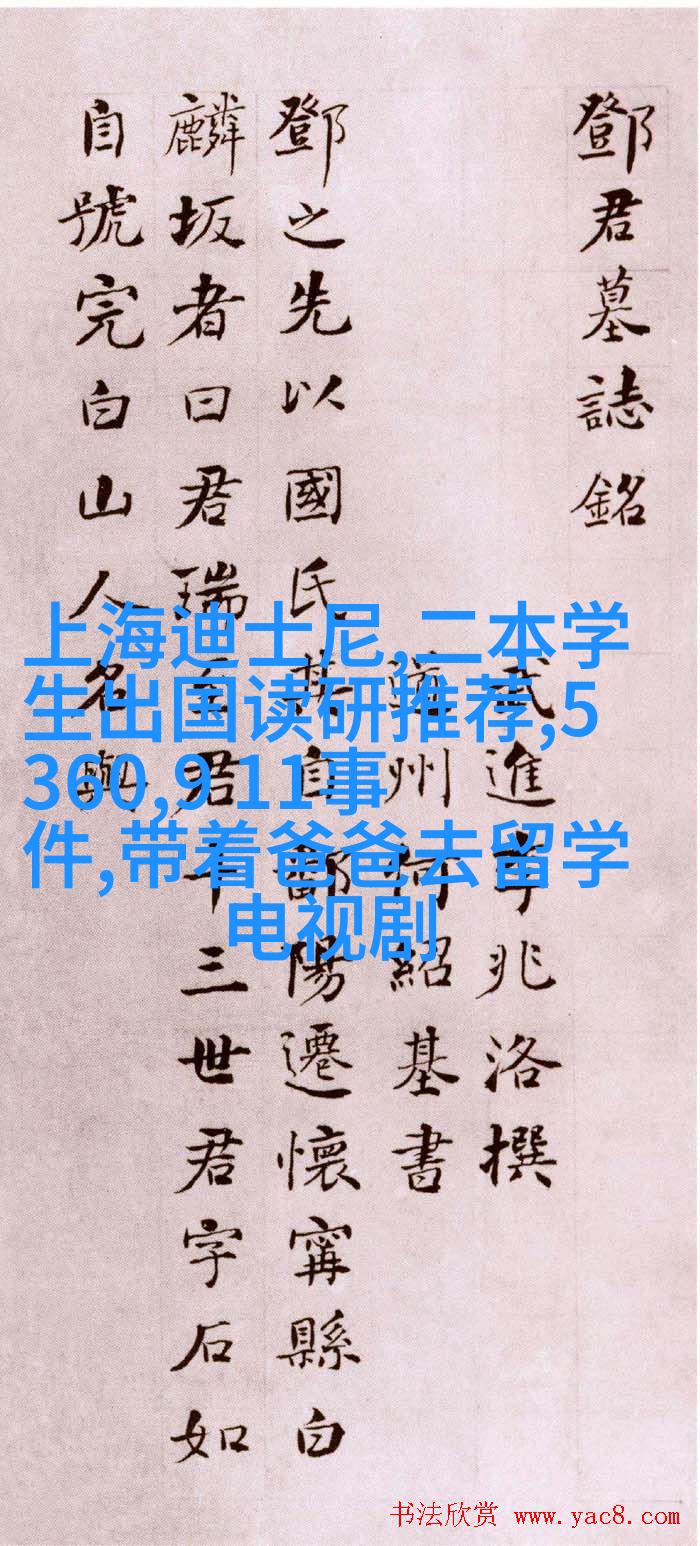 鄧君墓誌銘
武進李兆洛撰
道州何紹基書
鄧之先以國氏其自鄱陽遷懷甯縣白
麟坂者曰君瑞至君十三世君字石如
自號完白山人名與
上海迪士尼,二本学
生出国读研推荐,5
360,9 11事
件,带着爸爸去留学
电视剧
书法欣赏 www.yac8.com